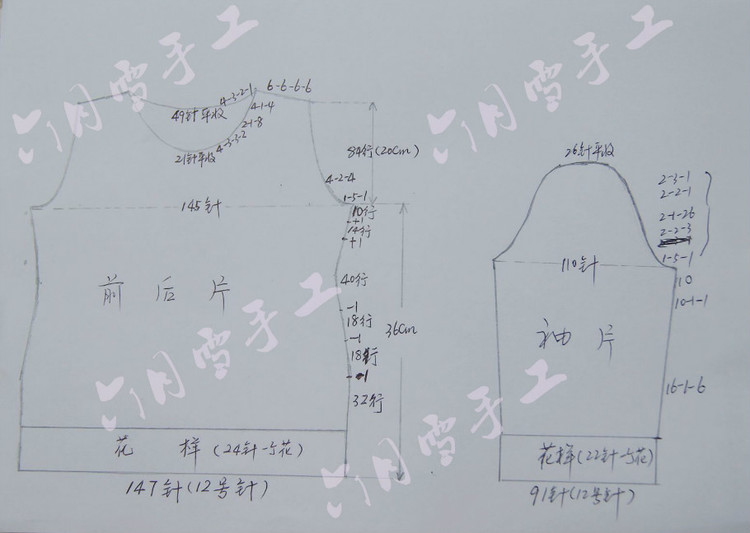 六月雪手工
六月雪手工
4-3-2-1
6-6-6-6
49针平收
4-1-4
2-1-8
21针平收
4-3-3-2
84行(20cm)
4-2-4
1-5-1
145针
10行
+1
14行
+1
前后片
40行
-1
18行
36cm
-1
18行
-1
32行
花样(24针一花)
147针(12号针)
26针平收
2-3-1
2-2-1
2-1-26
2-2-3
1-5-1
110针
10
10-1-1
袖片
16-1-6
花样(22针一花)
91针(12号针)
六月雪手工
六月雪手工